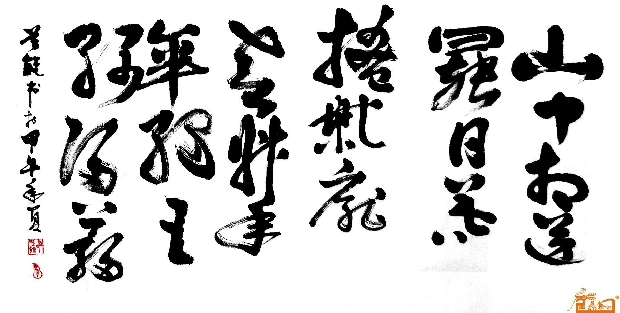 山中相送
罷日暮
掩柴扉
春草年
年綠王
孫歸不歸
能书於甲午年夏